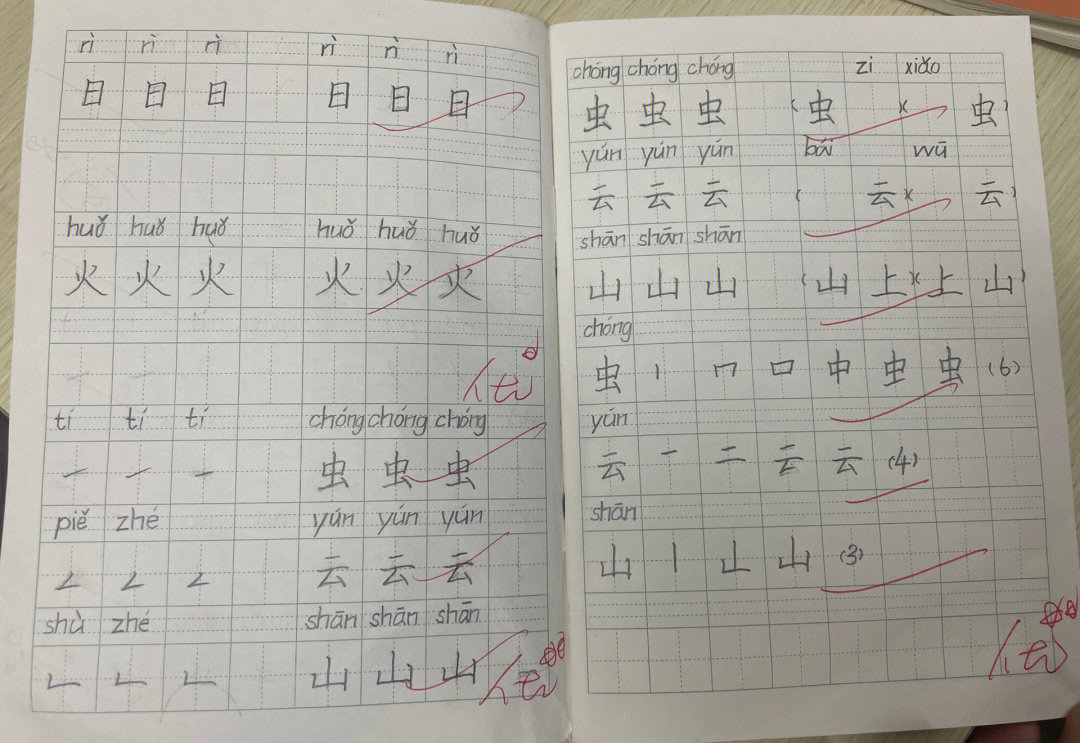 rì rì rì rì rì rì
日 日 日 日 日 日
huǒ huǒ huǒ huǒ huǒ huǒ
火 火 火 火 火 火
tí tí tí chóng chóng chóng
㇀ ㇀ ㇀ 虫 虫 虫
piě zhé yún yún yún
𠃋 𠃋 𠃋 云 云 云
shù zhé shān shān shān
𠃊 𠃊 𠃊 山 山 山
chóng chóng chóng zi xiǎo
虫 虫 虫 (虫 )( 虫)
yún yún yún bái wū
云 云 云 ( 云)( 云)
shān shān shān
山 山 山 (山 上)(上 山)
chóng
虫 丨 冂 口 中 虫 虫 (6)
yún
云 一 二 云 云 (4)
shān
山 丨 𠃊 山 (3)